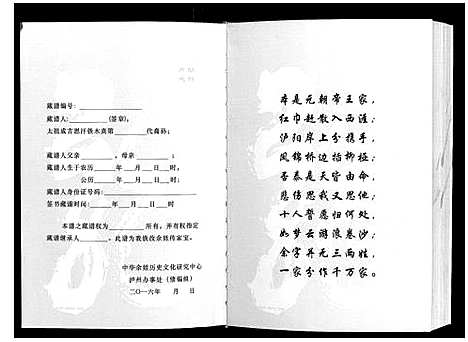 藏谱编号：
藏谱人：(签章)，
太祖成吉思汗铁木真第代裔孙：
藏谱人父亲、母亲；
藏谱人生于农历年月日时
公历年月日时
藏谱人身份证号码：
签书藏谱时间：年月日
本谱之藏谱权为所有，并有权指定
藏谱继承人。此谱为我族改余姓传家宝。
中华余姓历史文化研究中心
泸州办事处（储编组）
二〇一六年 月 日
本是元朝帝王家，
红巾赶散入西涯；
泸阳岸上分携手，
凤锦桥边插柳桠。
否泰是天皆由命，
悲伤思我又思他；
十人誓愿归何处，
如梦云游浪卷沙。
余字并无三两姓，
一家分作千万家。